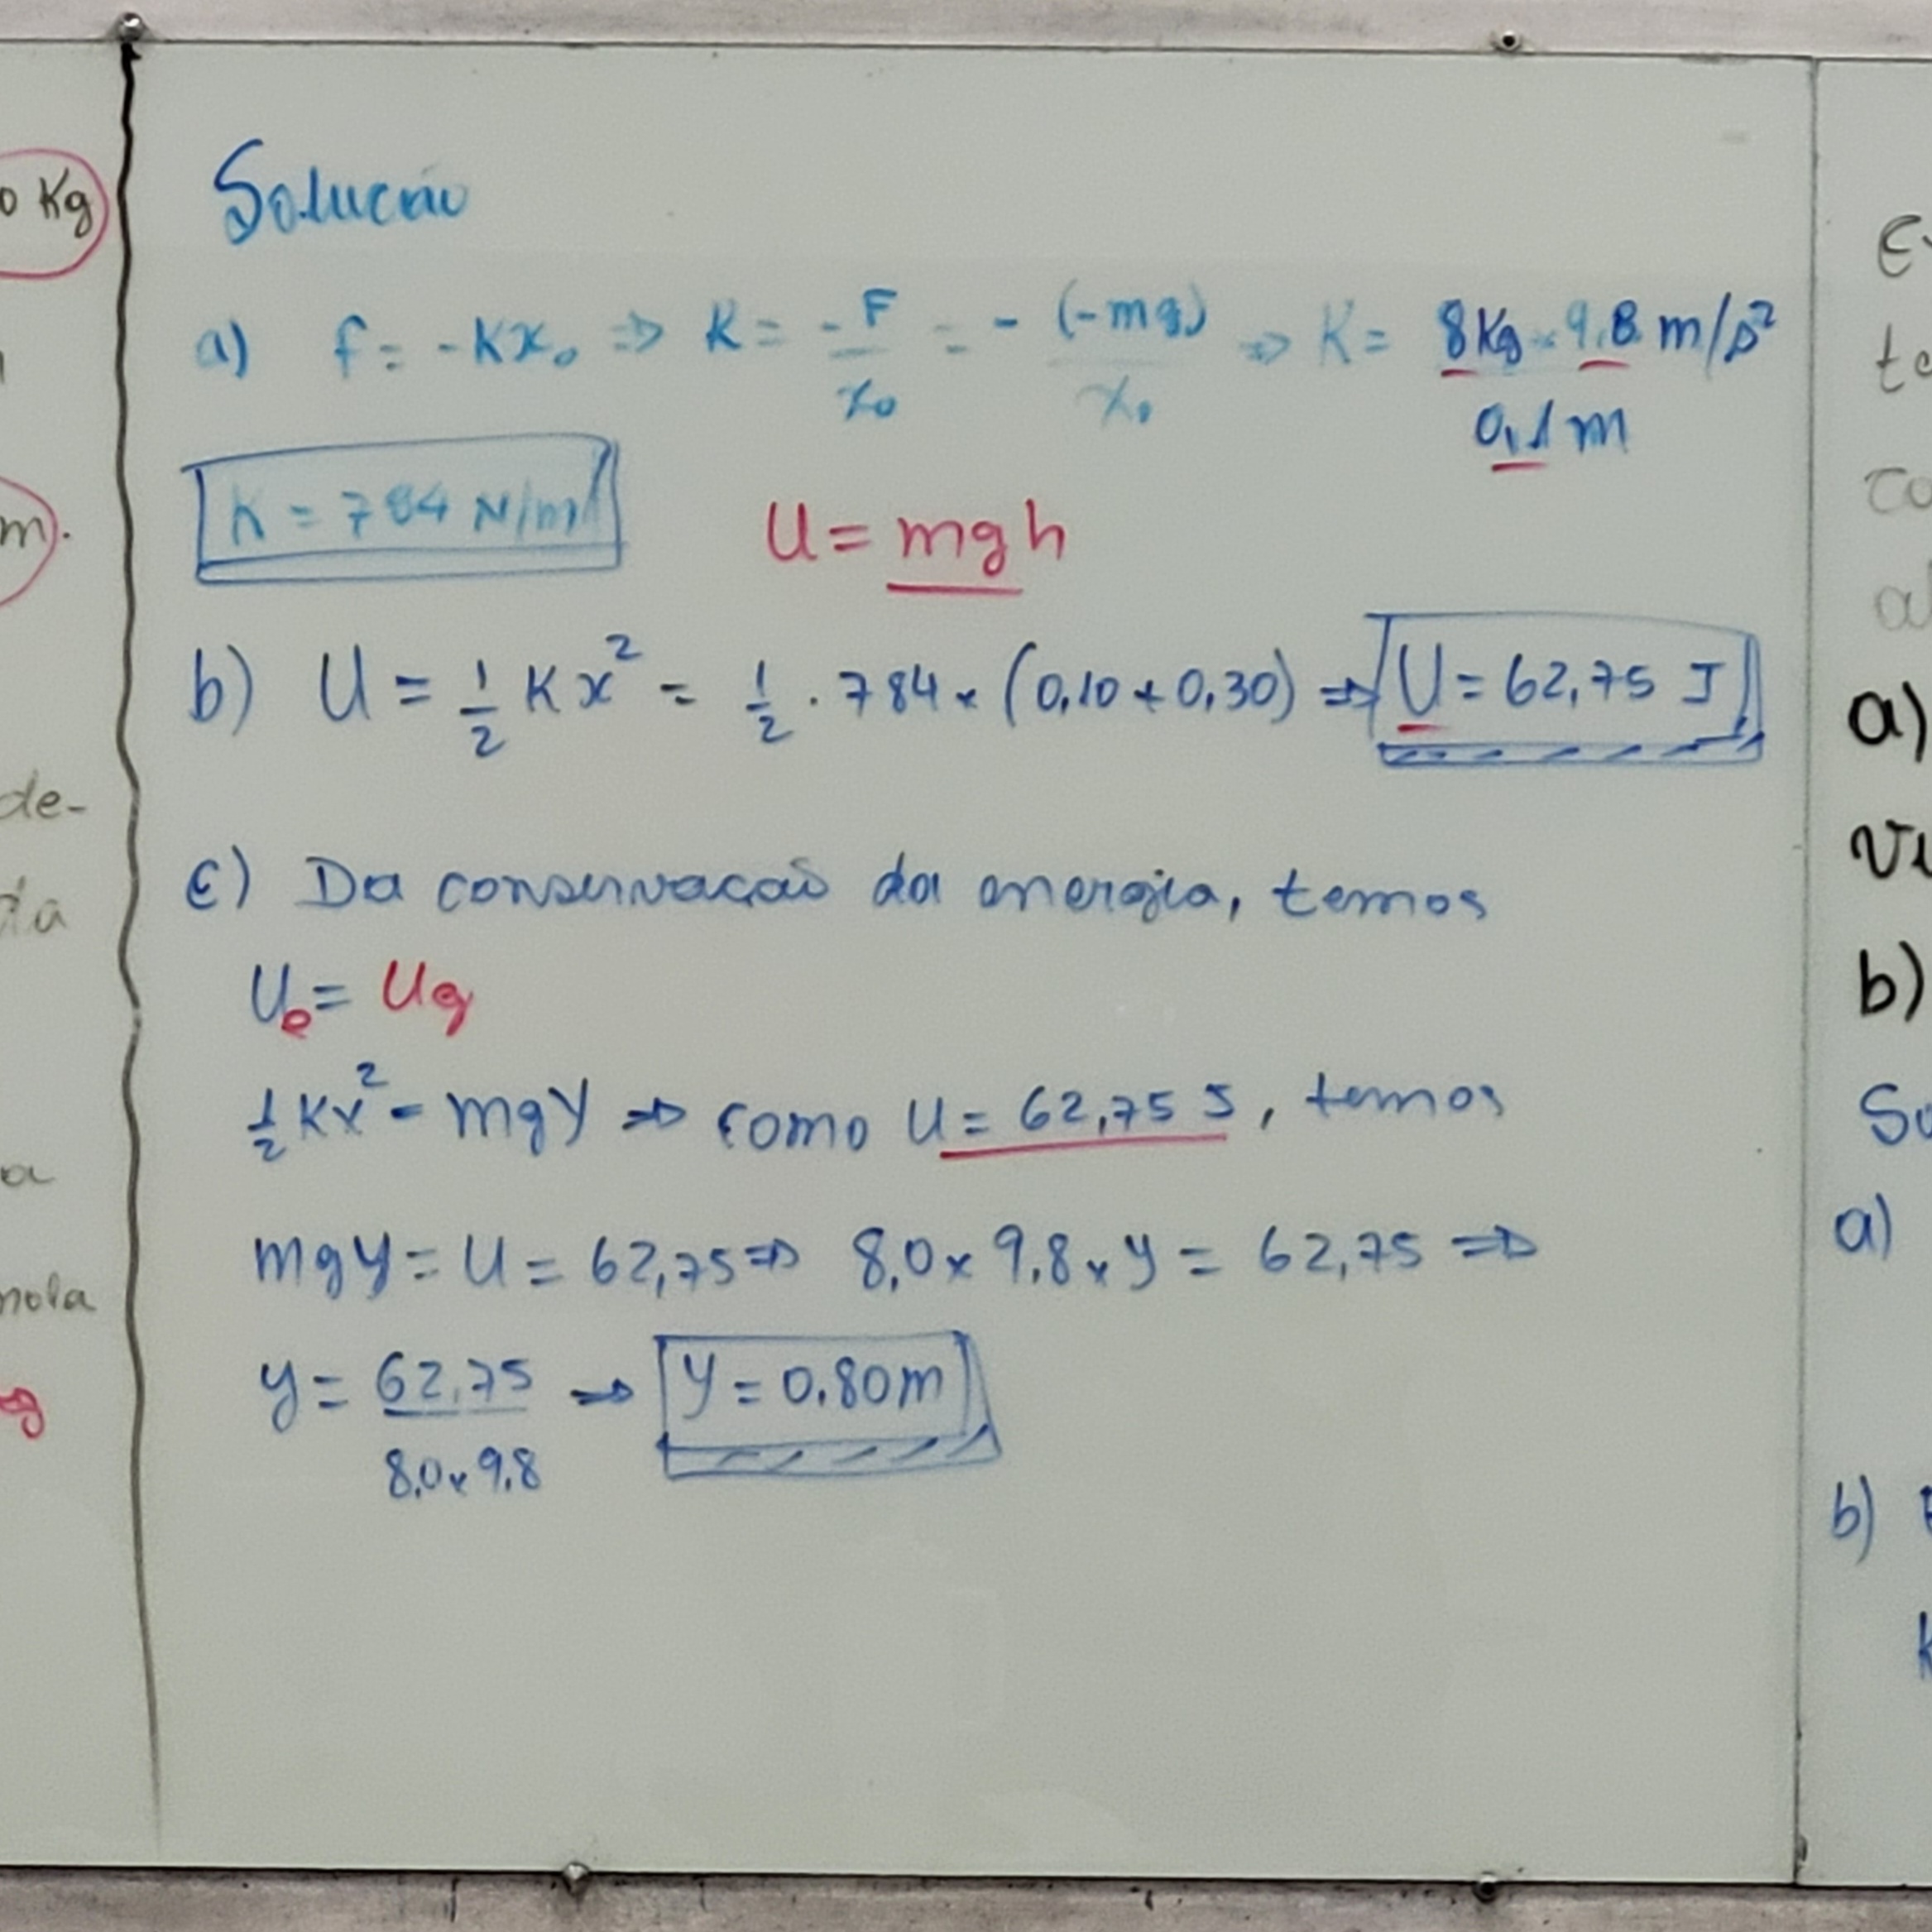 o Kg
m.
de-
da
a
mola
Solução
a) f = -Kx₀ ⇒ K = -F/x₀ = -(-mg)/x₀ ⇒ K = 8Kg × 9,8 m/s² / 0,1 m
K = 784 N/m
U = mgh
b) U = 1/2 Kx² = 1/2 . 784 × (0,10 + 0,30) ⇒ U = 62,75 J
c) Da conservação da energia, temos
Ue = Ug
1/2 Kx² = mgy ⇒ como U = 62,75 J, temos
mgy = U = 62,75 ⇒ 8,0 × 9,8 × y = 62,75 ⇒
y = 62,75 / 8,0 × 9,8 ⇒ y = 0,80 m
a)
b)
a)
b)